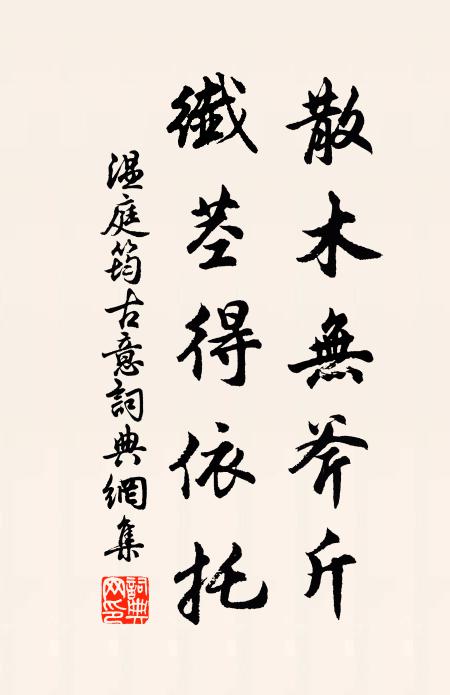 散木無斧斤
纖莖得依托
温庭筠古意詞典網集
詞典網印